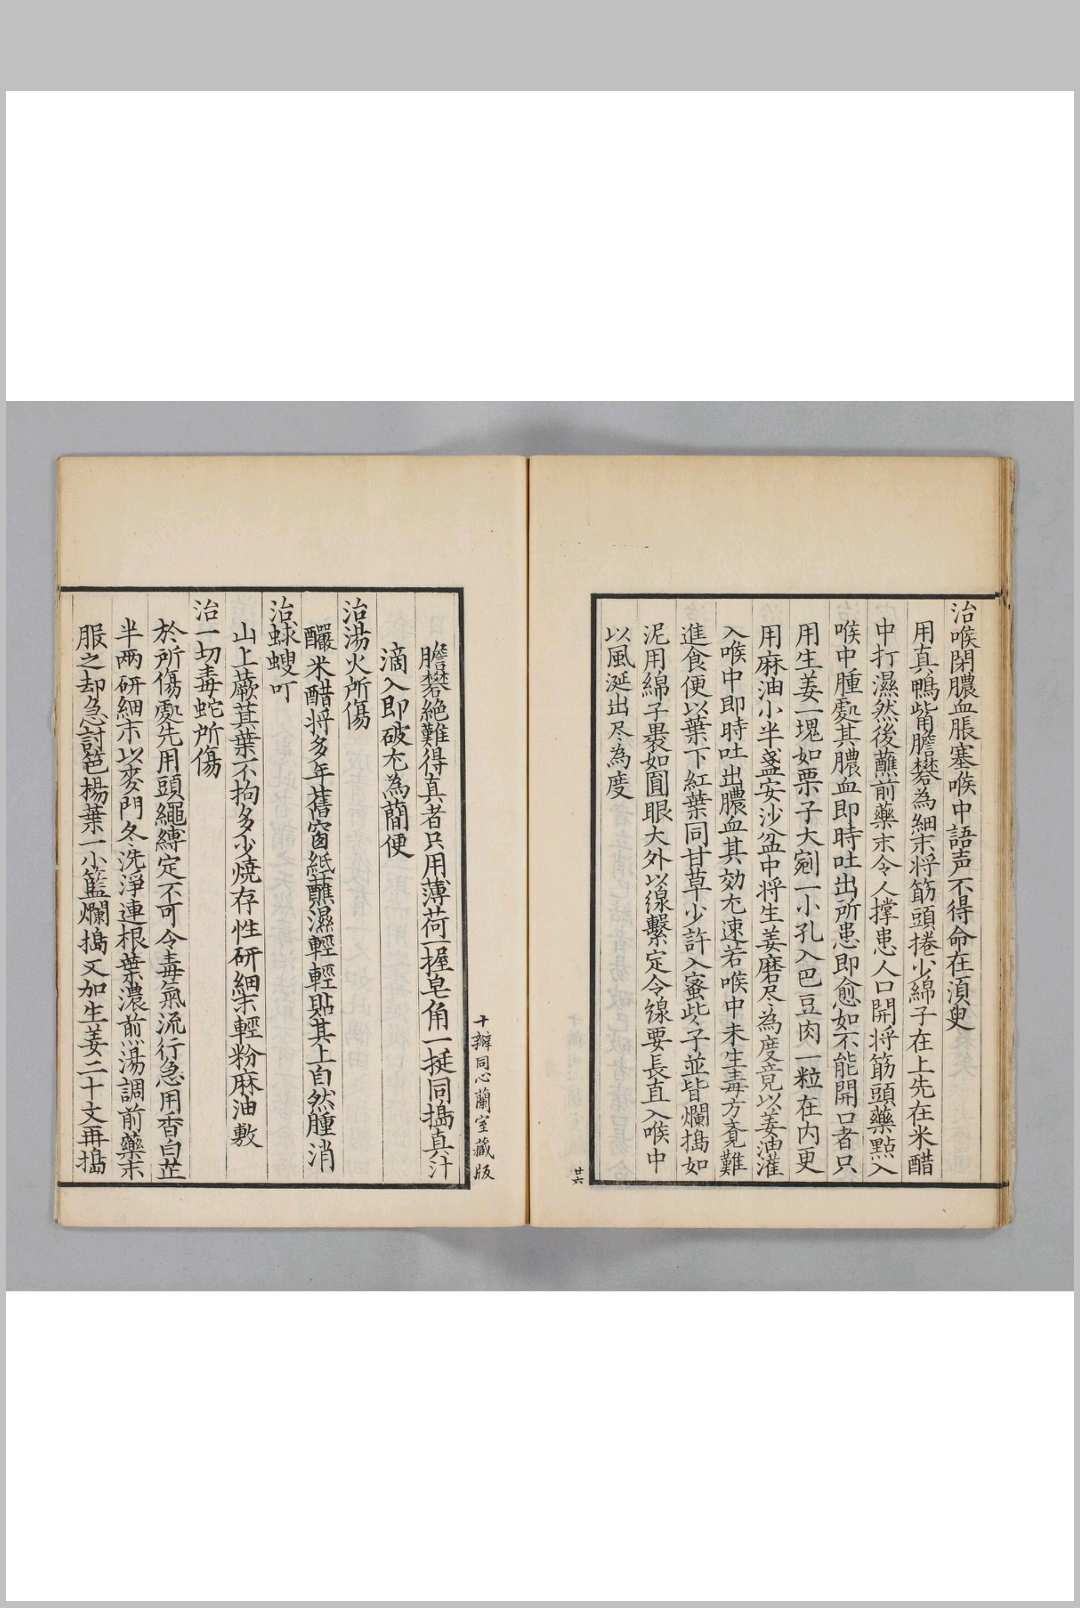 治喉閉膿血脹塞喉中語声不得命在湏臾
用真鴨觜膽礬為細末将筋頭捲少綿子在上先在米醋
中打濕然後蘸前藥末令人撑患人口開将筋頭藥點入
喉中腫處其膿血即時吐出所患即愈如不能開口者只
用生姜一塊如栗子大剜一小孔入巴豆肉一粒在内更
用麻油小半盞安沙盆中将生姜磨尽為度竟以姜油灌
入喉中即時吐出膿血其効尤速若喉中未生毒方覔難
進食便以葉下紅葉同甘草少許入蜜些子並皆爛搗如
泥用綿子裹如圓眼大外以線繫定令線要長直入喉中
以風涎出尽為度
廿六
十瓣同心蘭室藏版
膽礬絶難得真者只用薄荷一握皂角一挺同搗真汁
滴入即破尤為蕳便
治湯火所傷
釅米醋将多年舊窗紙蘸濕輕輕貼其上自然腫消
治蛷螋叮
山上蕨萁葉不拘多少燒存性研細末輕粉麻油敷
治一切毒蛇所傷
於所傷處先用頭繩縛定不可令毒氣流行急用香白芷
半两研細末以麥門冬洗淨連根葉濃煎湯調前藥末
服之却急討笆楊葉一小籃爛搗又加生姜二十文再搗